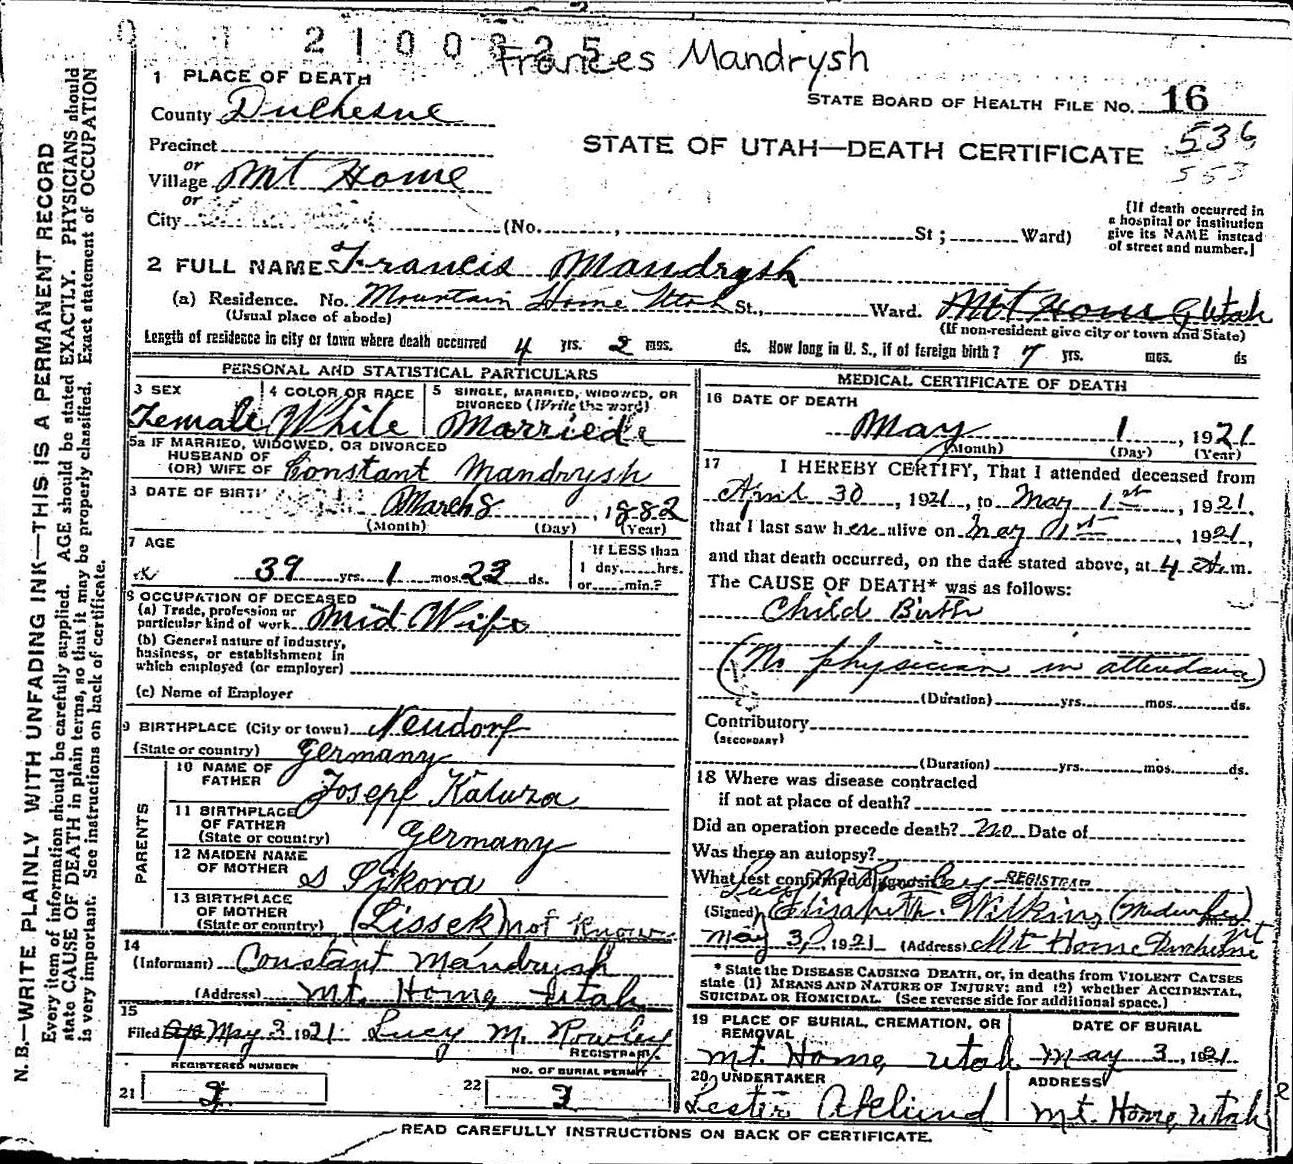 2100825
Frances Mandrysh
1 PLACE OF DEATH
STATE BOARD OF HEALTH FILE No. 16
County Duchesne
536
Precinct
STATE OF UTAH—DEATH CERTIFICATE
553
or
Village Mt Home
or
City (No. , St ; Ward)
[If death occurred in
a hospital or institution
give its NAME instead
of street and number.]
2 FULL NAME Francis Mandrysh
(a) Residence. No. Mountain Home Utah St., Ward. Mt Home Utah
(Usual place of abode) (If non-resident give city or town and State)
Length of residence in city or town where death occurred 4 yrs. 2 mos. ds. How long in U. S., if of foreign birth? 7 yrs. mos. ds
PERSONAL AND STATISTICAL PARTICULARS
3 SEX Female
4 COLOR OR RACE White
5 SINGLE, MARRIED, WIDOWED, OR
DIVORCED (Write the word)
Married
5a IF MARRIED, WIDOWED, OR DIVORCED
HUSBAND OF
(OR) WIFE OF Constant Mandrysh
DATE OF BIRTH March 8, 1882
(Month) (Day) (Year)
7 AGE
39 yrs. 1 mos. 23 ds.
If LESS than
1 day, hrs.
or min.?
8 OCCUPATION OF DECEASED
(a) Trade, profession or
particular kind of work Mid Wife
(b) General nature of industry,
business, or establishment in
which employed (or employer)
(c) Name of Employer
9 BIRTHPLACE (City or town) Neudorf
(State or country) Germany
PARENTS
10 NAME OF
FATHER Josepf Kaluza
11 BIRTHPLACE
OF FATHER
(State or country) Germany
12 MAIDEN NAME
OF MOTHER S Sikora
13 BIRTHPLACE
OF MOTHER
(State or country) (Lissek) not know
14
(Informant) Constant Mandrysh
(Address) Mt. Home, Utah
15
Filed May 3 1921 Lucy M. Rowley
REGISTRAR
REGISTERED NUMBER
21
22 NO. OF BURIAL PERMIT
3
MEDICAL CERTIFICATE OF DEATH
16 DATE OF DEATH
May 1, 1921
(Month) (Day) (Year)
17 I HEREBY CERTIFY, That I attended deceased from
April 30, 1921, to May 1st, 1921,
that I last saw her alive on May 1st, 1921,
and that death occurred, on the date stated above, at 4 A.m.
The CAUSE OF DEATH* was as follows:
Child Birth
(No physician in attendance)
(Duration) yrs. mos. ds.
Contributory
(SECONDARY)
(Duration) yrs. mos. ds.
18 Where was disease contracted
if not at place of death?
Did an operation precede death? No Date of
Was there an autopsy?
What test confirmed diagnosis?
Lucy M. Rowley REGISTRAR
(Signed) Elizabeth Wilkins (Midwife)
May 3, 1921 (Address) Mt Home Duchesne
* State the DISEASE CAUSING DEATH, or, in deaths from VIOLENT CAUSES
state (1) MEANS AND NATURE OF INJURY; and (2) whether ACCIDENTAL,
SUICIDAL OR HOMICIDAL. (See reverse side for additional space.)
19 PLACE OF BURIAL, CREMATION, OR
REMOVAL
Mt. Home, Utah
DATE OF BURIAL
May 3, 1921
20 UNDERTAKER
Lester Aklund
ADDRESS
Mt. Home, Utah
READ CAREFULLY INSTRUCTIONS ON BACK OF CERTIFICATE.
N. B.—WRITE PLAINLY WITH UNFADING INK—THIS IS A PERMANENT RECORD
Every item of information should be carefully supplied. AGE should be stated EXACTLY. PHYSICIANS should
state CAUSE OF DEATH in plain terms, so that it may be properly classified. Exact statement of OCCUPATION
is very important. See instructions on back of certificate.